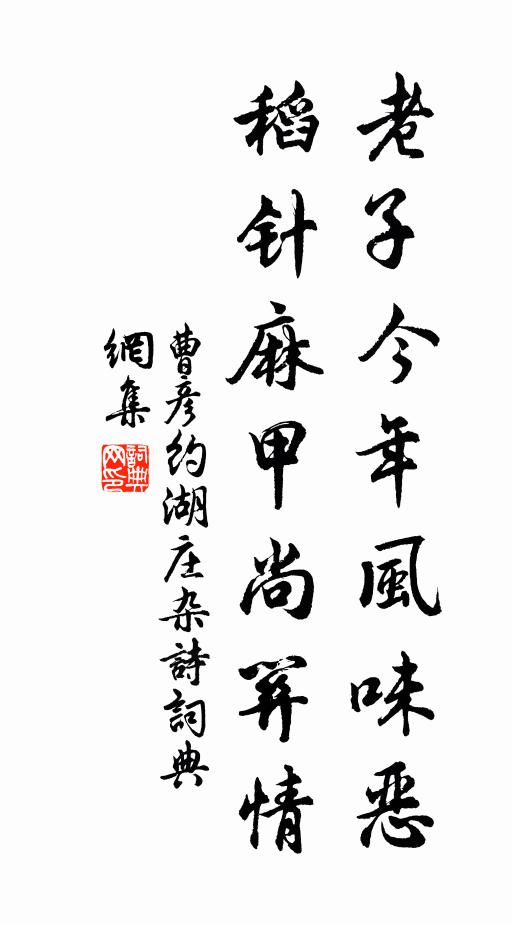 老子今年風味惡
稻针麻甲尚關情
曹彦约湖庄杂詩詞典
網集
詞典
网印